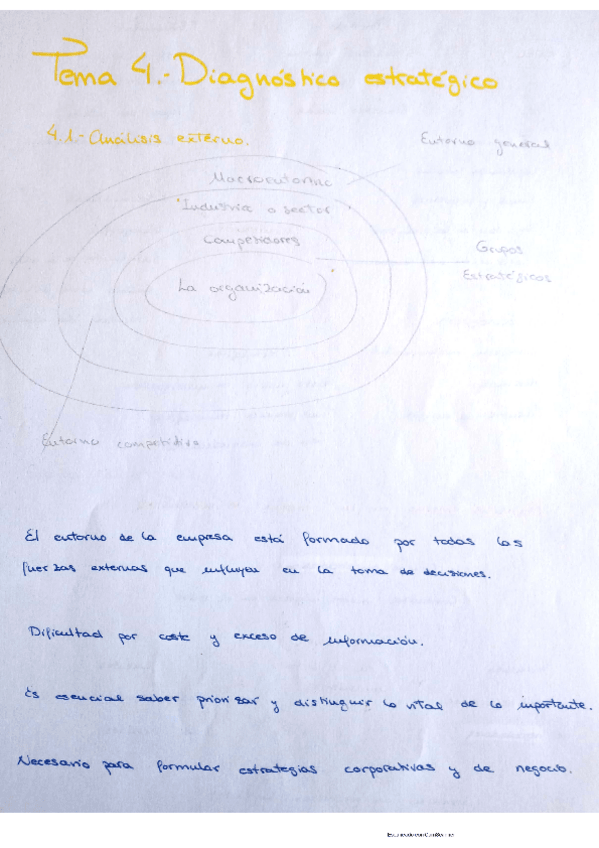 Tema 4.- Diagnóstico estratégico
4.1.- Análisis externo.
Entorno general
Macroentorno
Industria o sector
Competidores
Grupos
Estratégicos
La organización
Entorno competitivo
El entorno de la empresa está formado por todas las
fuerzas externas que influyen en la toma de decisiones.
Dificultad por coste y exceso de información.
Es esencial saber priorizar y distinguir lo vital de lo importante.
Necesario para formular estrategias corporativas y de negocio.
Escaneado con CamScanner